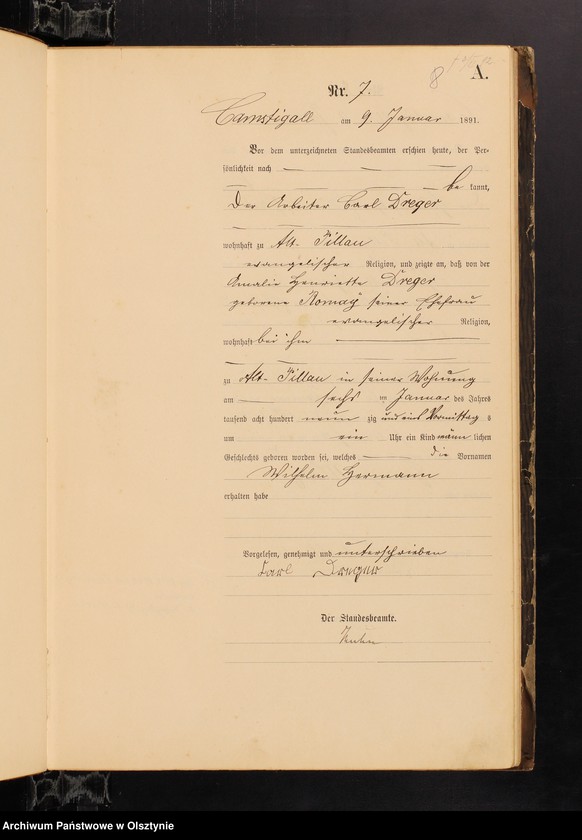 8
A.
Nr. 7.
Camstigall am 9. Januar 1891.
Vor dem unterzeichneten Standesbeamten erschien heute, der Per-
sönlichkeit nach
be kannt,
Der Arbeiter Carl Dreger
wohnhaft zu Alt-Pillau
evangelischer Religion, und zeigte an, daß von der
Amalie Henriette Dreger
geborene Romay seiner Ehefrau
evangelischer Religion,
wohnhaft bei ihm
zu Alt-Pillau in seiner Wohnung
am sechs ten Januar des Jahres
tausend acht hundert neun zig und eins Vormittag s
um ein Uhr ein Kind männ lichen
Geschlechts geboren worden sei, welches die Vornamen
Wilhelm Hermann
erhalten habe
Vorgelesen, genehmigt und unterschrieben
Carl Dreger
Der Standesbeamte.
Archiwum Państwowe w Olsztynie